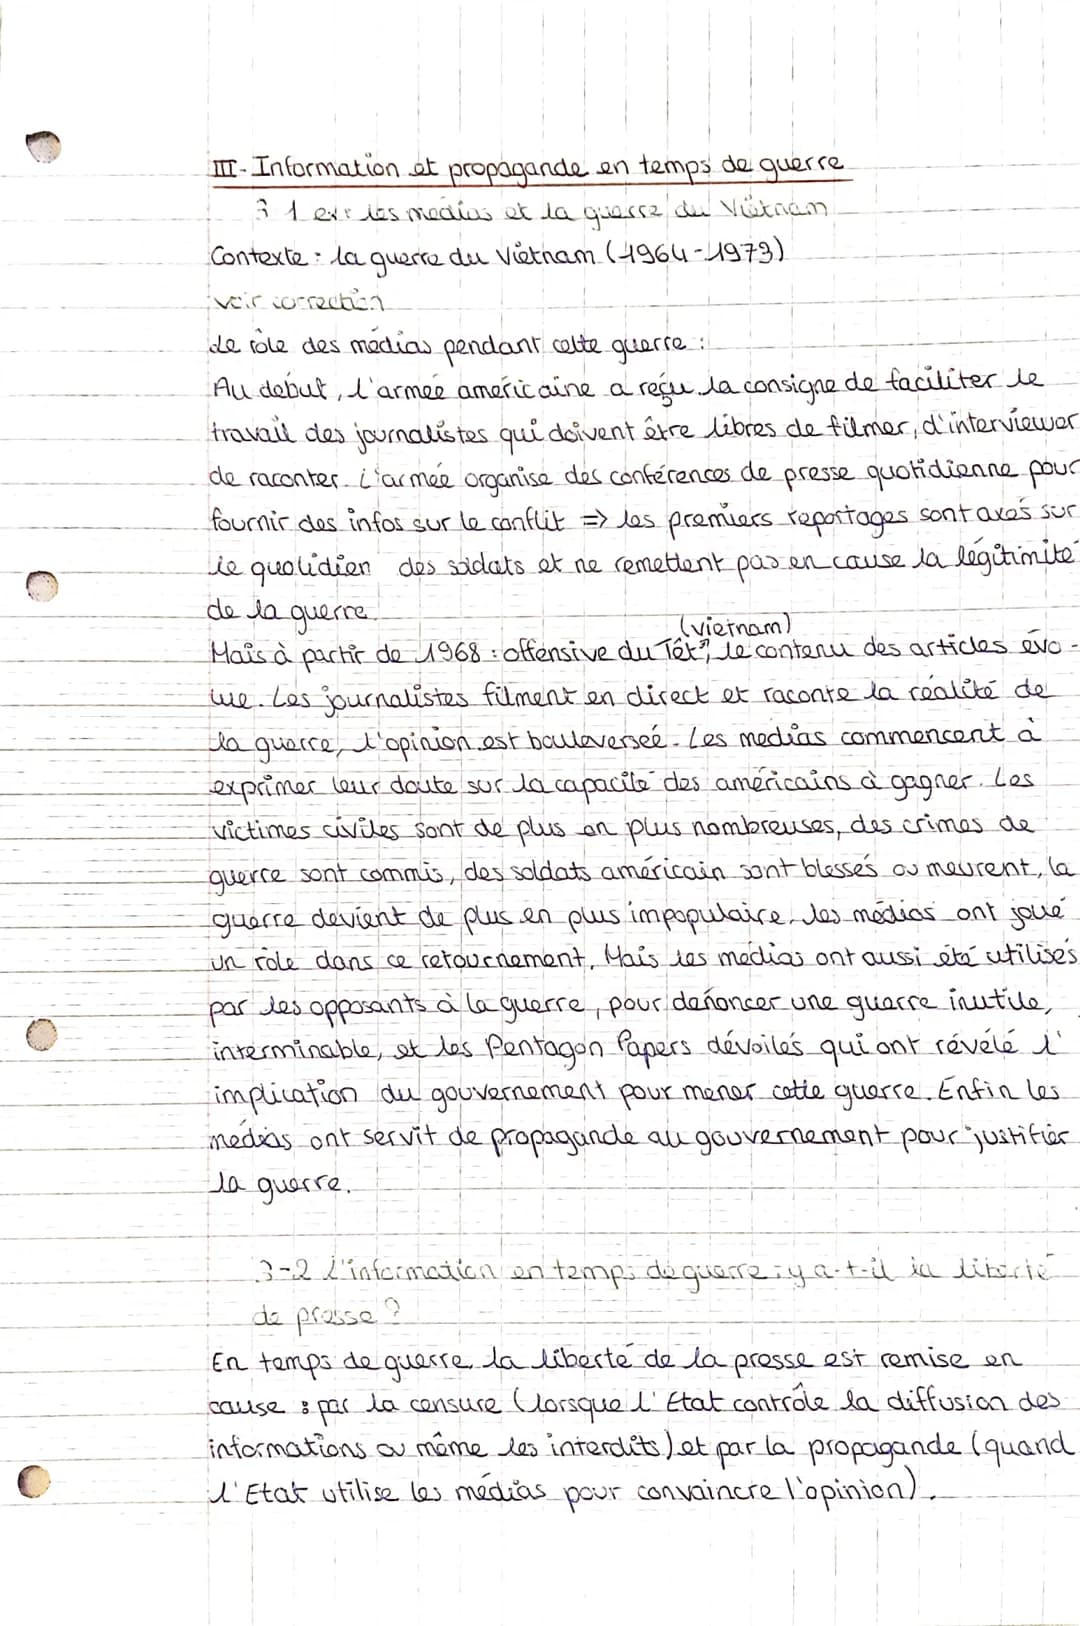 III- Information et propagande en temps de guerre
3 1 ex: les medias et la guerre du Viêtnam
Contexte : la guerre du Viêtnam (1964-1973)
voir correction
Le rôle des médias pendant cette guerre :
Au debut, l'armée américaine a reçu la consigne de faciliter le
travail des journalistes qui doivent être libres de filmer, d'interviewer
de raconter. L'armée organise des conférences de presse quotidienne pour
fournir des infos sur le conflit => les premiers reportages sont axés sur
le quotidien des soldats et ne remettent pas en cause la légitimité
de la guerre.
(vietnam)
Mais à partir de 1968 : offensive du Têt, le contenu des articles évo-
lue. Les journalistes filment en direct et raconte la réalité de
la guerre, l'opinion est bouleversée. Les medias commencent à
exprimer leur doute sur la capacité des américains à gagner. Les
victimes civiles sont de plus en plus nombreuses, des crimes de
guerre sont commis, des soldats américain sont blessés ou meurent, la
guerre devient de plus en plus impopulaire, les médias ont joué
un rôle dans ce retournement. Mais les médias ont aussi été utilisés
par les opposants à la guerre, pour dénoncer une guerre inutile,
interminable, et les Pentagon Papers dévoilés qui ont révélé l'
implication du gouvernement pour mener cette guerre. Enfin les
médias ont servit de propagande au gouvernement pour justifier
la guerre.
3-2 L'information en temps de guerre : y a-t-il la liberté
de presse ?
En temps de guerre la liberté de la presse est remise en
cause : par la censure (lorsque l'Etat contrôle la diffusion des
informations ou même les interdits) et par la propagande (quand
l'Etat utilise les médias pour convaincre l'opinion).